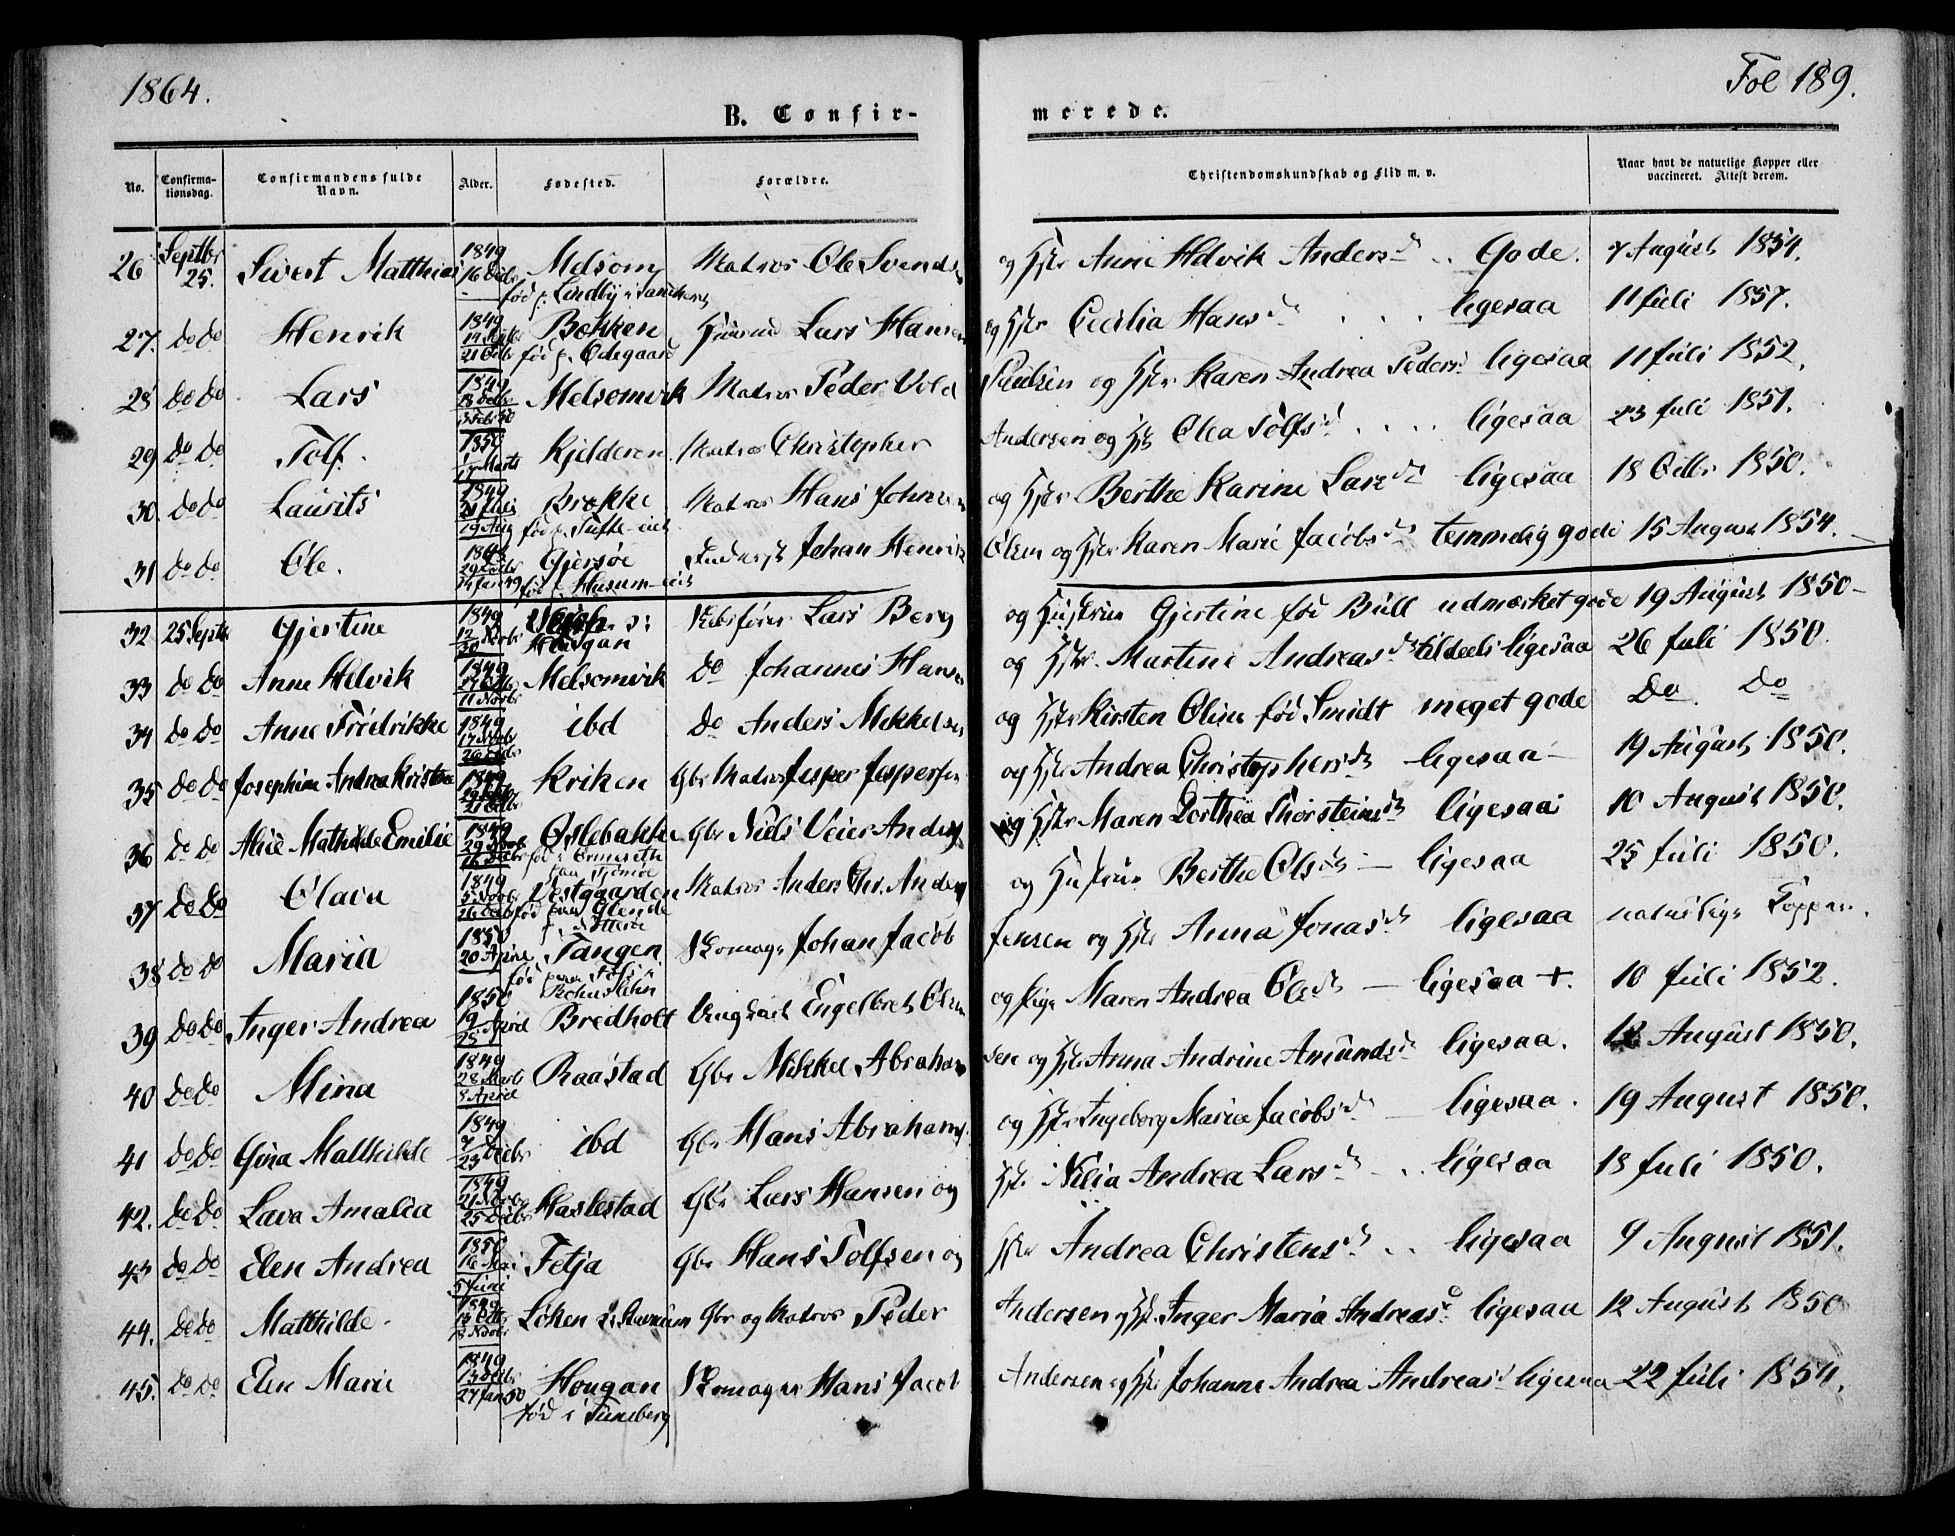 1864.
Fol 189.
B. Confir-
merede.
No.
Confirma-
tionsdag.
Confirmandens fulde
Navn.
Alder.
Fødested.
Forældre.
Christendomskundskab og Flid m. v.
Naar havt de naturlige Kopper eller
vaccineret. Attest derom.
26 Septbr 25. Sivert Matthias 1849 16 Decbr Melsom Matros Ole Svends og Hstr Anne Helvik Andersd. Gode. 7 August 1854.
27. do do Henrik 1849 21 Octbr Bokken fød p. Ødegaard Lars Hansen og Hstr Cecilia Hansd. ligesaa 11 Juli 1857.
28 do do Lars 1849 Melsomvik Matros Peder Vold Paulsen og Hstr Karen Andrea Peders ligesaa 11 Juli 1852.
29 do do Tolf. 1850 17 Marts Kjelderen Matros Christopher Andersen og Hstr Olea Tolfsd. ligesaa 23 Juli 1851.
30. do do Laurits 1849 21 Juli 19 Aug Brække Matros Hans Johnsen og Hstr Berthe Karine Larsd. ligesaa 18 Octbr 1850.
31 do do Ole. 1848 29 Decbr 14 Jan 49 Gjersøe Johan Henrik Olsen og Hstr Karen Marie Jacobsd. temmelig gode 15 August 1854.
32 25 Septbr Gjertine 1849 12 Novbr 30 Haugan Skibsfører Lars Berg og Hustru Gjertine fød Bull udmærket gode 19 August 1850
33 do do Anne Helvik 1849 11 Novbr Melsomvik do Johannes Hansen og Hstr. Martine Andreasd. tildeels ligesaa 26 Juli 1850.
34 do do Anne Fredrikke 1849 17 Novbr 26 Decbr ibd do Anders Mikkelsen og Hstr Kirsten Oline fød Smidt meget gode do do
35 do do Josephine Andrea Kristine 1849 21 Decbr Kriken Gbr Matros Jesper Jespersen og Hstr Andrea Christophersd. ligesaa 19 August 1850.
36 do do Alice Mathilde Emilie 1849 29 Novbr 26 Decbr Oslebakke Gbr Niels Veier Anders og Hstr Maren Dorthea Thorsteinsd. ligesaa 10 August 1850.
37 do do Olava 1849 5 Novbr 26 Decbr Vestgaarden Matros Anders Chr. Anders og Hustrue Berthe Olsd. ligesaa 25 Juli 1850.
38 do do Maria 1850 20 April Tangen Skomager Johan Jacob Jensen og Hstr Anna Jonasd. ligesaa naturlige Kopper.
39 do do Inger Andrea 1850 19 25 April Bredholt Engelbret Olsen og Pige Maren Andrea Olsd. ligesaa +. 10 Juli 1852.
40 do do Mina 1849 28 Marts 8 April Raastad Gbr Mikkel Abraham sen og Hstr Anna Andrine Amundsd. ligesaa. 12 August 1850.
41 do do Gina Mathilde 1849 7 23 Decbr ibd Gbr Hans Abrahams og Hstr Ingeborg Maria Jacobsd. ligesaa. 19 August 1850.
42. do do Lava Amalia 1849 21 Novbr 25 Decbr Haslestad Gbr Lars Hansen og Hstr Nilia Andrea Larsd. ligesaa 18 Juli 1850.
43 do do Elen Andrea 1850 16 Mai 5 Juni Fetja Gbr Hans Tolfsen og Hstr Andrea Christensd. ligesaa 9 August 1851.
44. do do Matthilde. 1849 13 Octbr 18 Novbr Løken Gbr og Matros Peder Andersen og Hstr Inger Maria Andreasd. ligesaa 12 August 1850
45. do do Elen Marie 1849 13 Decbr 27 Jan 50 Hougan fød i Tunsberg Skomager Hans Jacob Andersen og Hstr Johanne Andrea Andreasd ligesaa 22 Juli 1854.